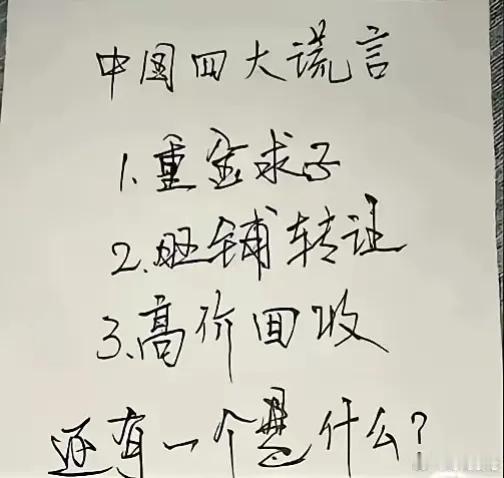 中国四大谎言
1.重金求子
2.旺铺转让
3.高价回收
还有一个是什么?